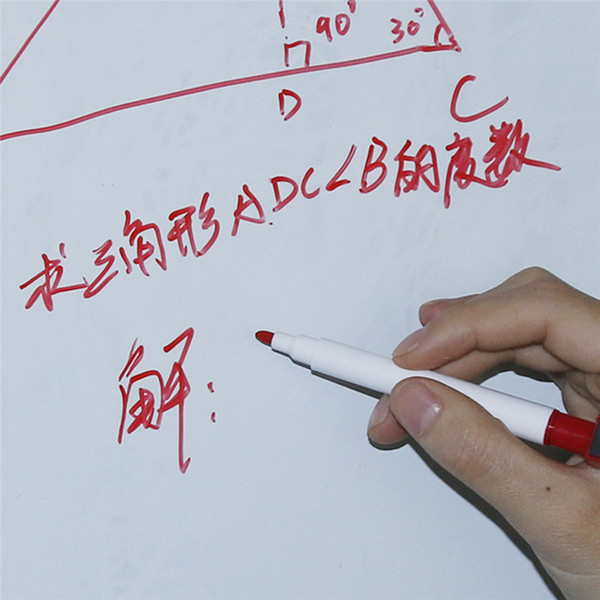 90° 30°
D C
求三角形ADC∠B的度数
解: